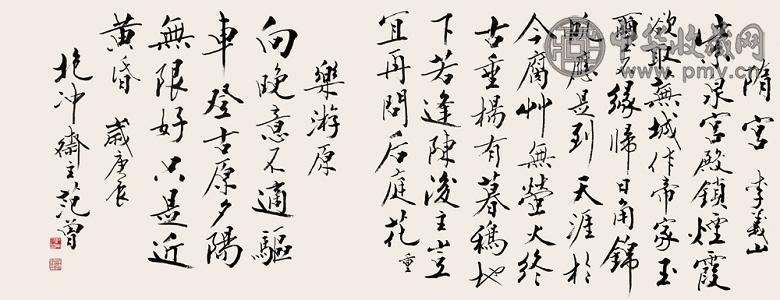 隋宮 李義山
紫泉宮殿鎖煙霞
欲取蕪城作帝家玉
璽不緣歸日角錦
帆應是到天涯於
今腐艸無螢火終
古垂楊有暮鴉地
下若逢陳後主豈
宜再問后庭花 重
樂游原
向晚意不適驅
車登古原夕陽
無限好只是近
黃昏 歲庚辰
抱冲齋主范曾
中华收藏网
www.pmv.cn